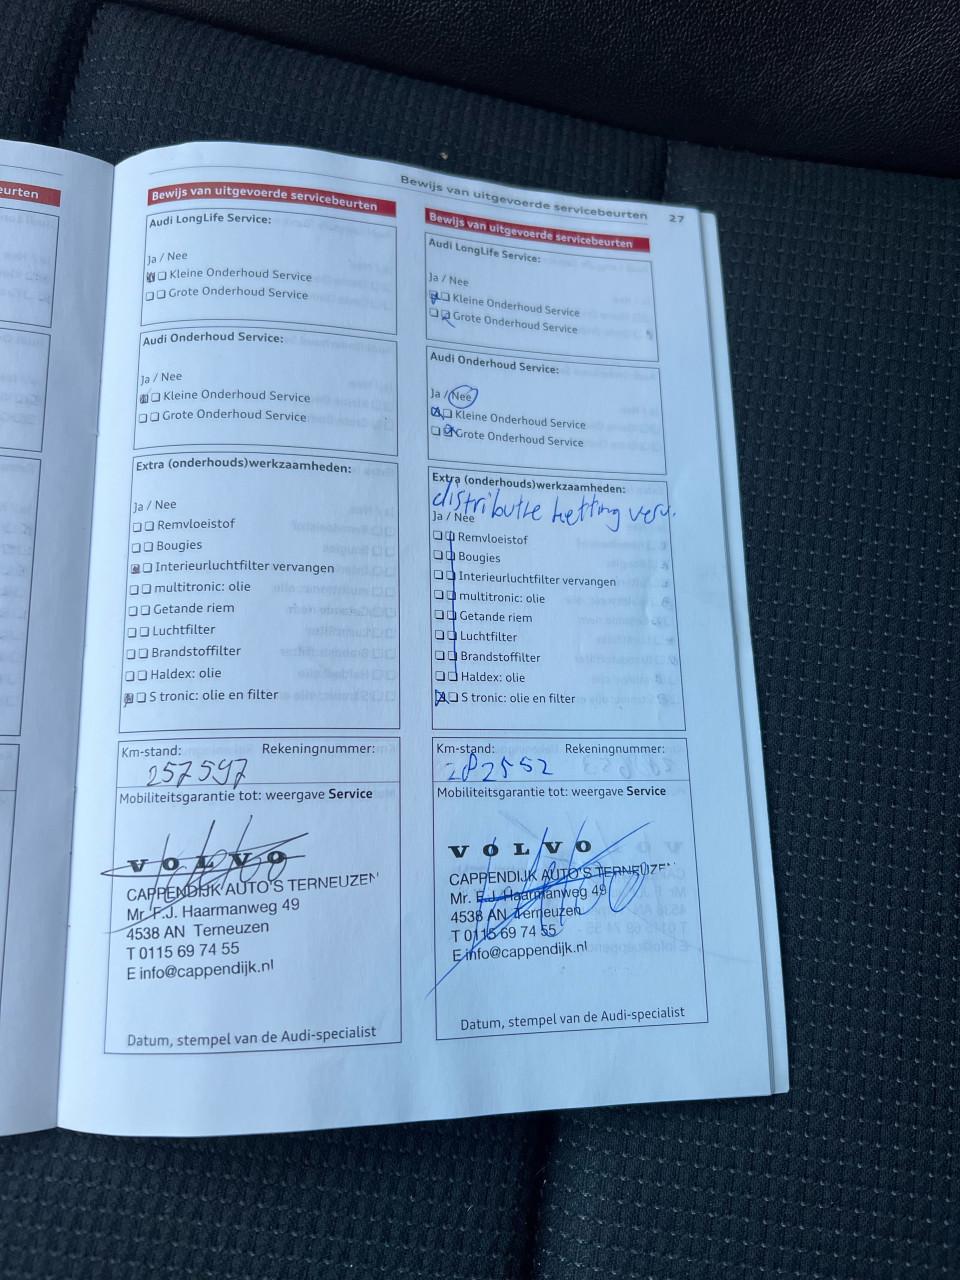 eurten
Bewijs van uitgevoerde servicebeurten 27
Bewijs van uitgevoerde servicebeurten
Audi LongLife Service:
Ja / Nee
Kleine Onderhoud Service
Grote Onderhoud Service
Audi Onderhoud Service:
Ja / Nee
Kleine Onderhoud Service
Grote Onderhoud Service
Extra (onderhouds)werkzaamheden:
Ja / Nee
Remvloeistof
Bougies
Interieurluchtfilter vervangen
multitronic: olie
Getande riem
Luchtfilter
Brandstoffilter
Haldex: olie
S tronic: olie en filter
Km-stand: Rekeningnummer:
257597
Mobiliteitsgarantie tot: weergave Service
VOLVO
CAPPENDIJK AUTO'S TERNEUZEN
Mr. F.J. Haarmanweg 49
4538 AN Terneuzen
T 0115 69 74 55
E info@cappendijk.nl
Datum, stempel van de Audi-specialist
Bewijs van uitgevoerde servicebeurten
Audi LongLife Service:
Ja / Nee
Kleine Onderhoud Service
Grote Onderhoud Service
Audi Onderhoud Service:
Ja / Nee
Kleine Onderhoud Service
Grote Onderhoud Service
Extra (onderhouds)werkzaamheden:
distributie ketting verv.
Ja / Nee
Remvloeistof
Bougies
Interieurluchtfilter vervangen
multitronic: olie
Getande riem
Luchtfilter
Brandstoffilter
Haldex: olie
S tronic: olie en filter
Km-stand: Rekeningnummer:
282552
Mobiliteitsgarantie tot: weergave Service
VOLVO
CAPPENDIJK AUTO'S TERNEUZEN
Mr. F.J. Haarmanweg 49
4538 AN Terneuzen
T 0115 69 74 55
E info@cappendijk.nl
Datum, stempel van de Audi-specialist